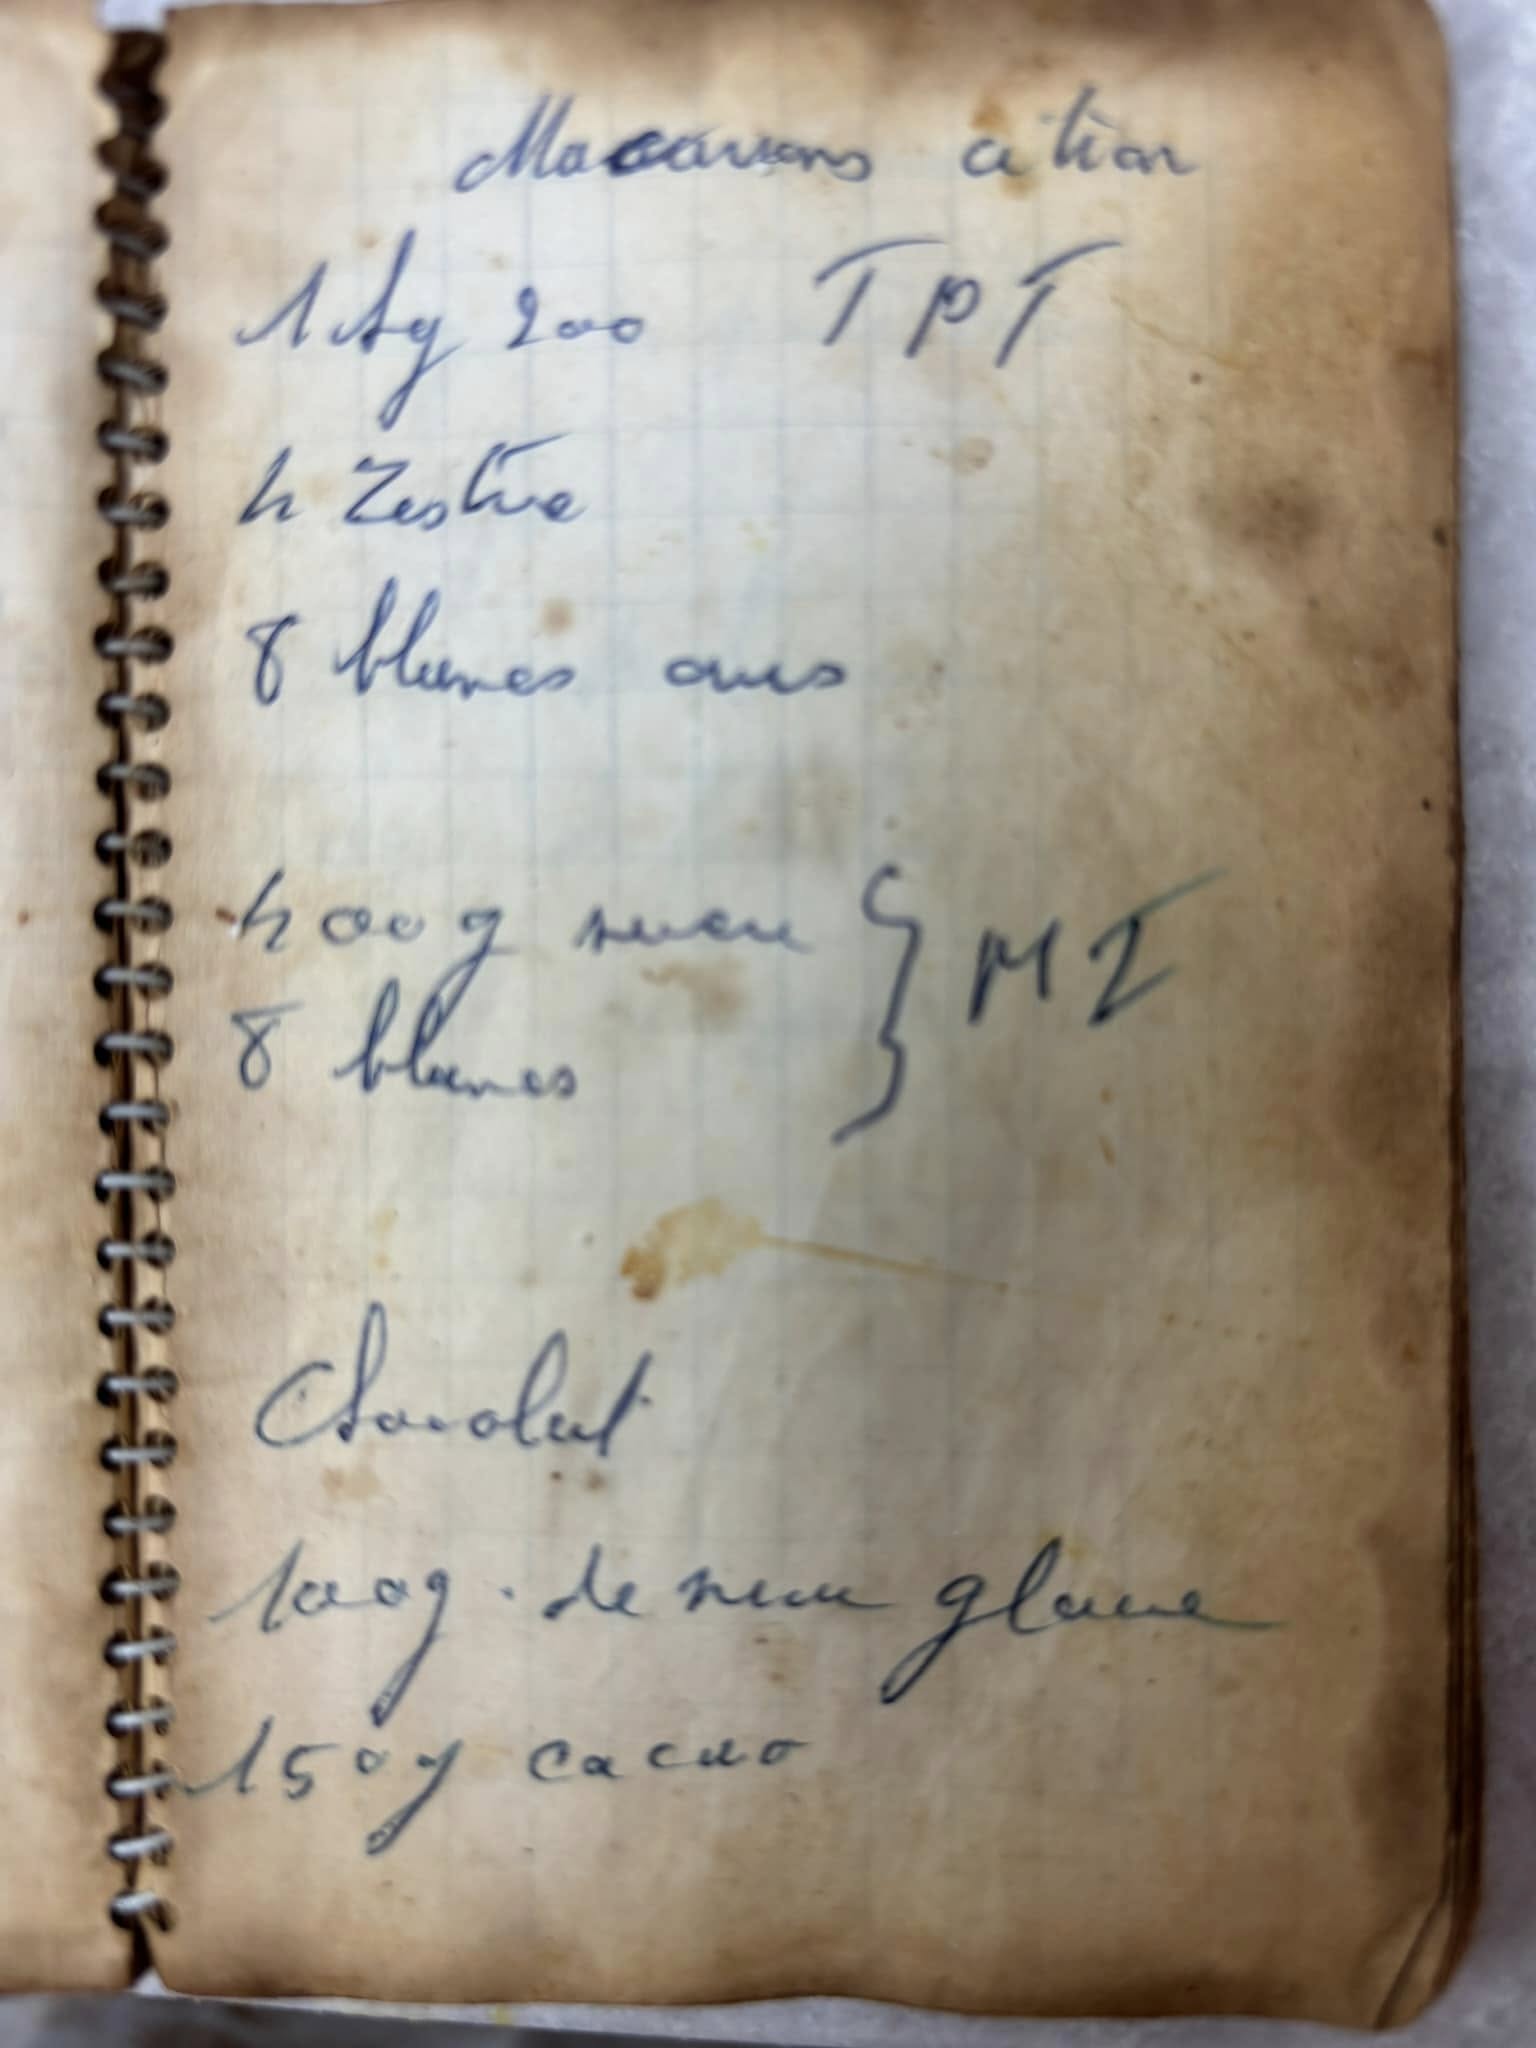 Macarons citron
1 kg 200 TPT
4 Zestre
8 blancs
400g sucre
8 blancs } MI
Chocolat
100g. de sucre glace
150g cacao